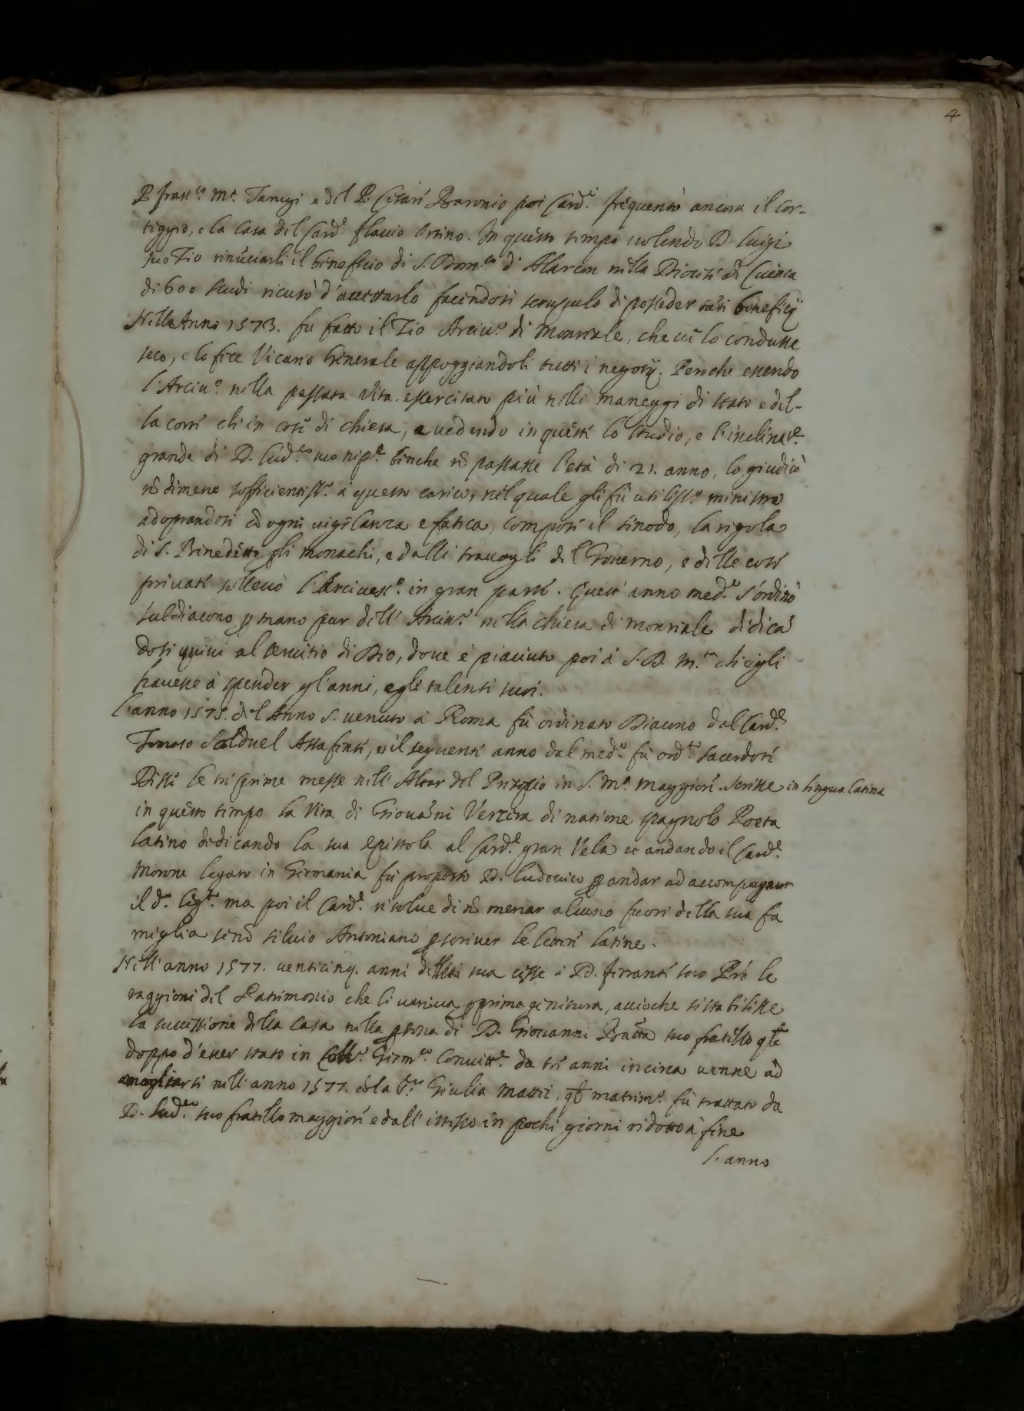 4
P. fran.co M.a Tarugi e del P. Cesare Baronio poi Card.e frequentò ancora il cor-
teggio, e la casa del Card.e flavio Orsino. In questo tempo volendo D. Luigi
suo Tio rinuciarli il beneficio di S. Dom.co d'Alarcon nella Diocesi di Cuenca
di 600 scudi ricusò d'accettarlo facendosi scrupulo di posseder tali beneficij
Nell Anno 1573. fu fatto il Tio Arciu.o di Monreale, che lo condusse
seco, e lo fece Vicario Generale appoggiandoli tutti i negotij. Perche essendo
l'Arciu.o nella passata vita essercitato più nelli maneggi di stato e del-
la corte che in cose di chiesa, e vedendo in questi lo studio, e l'inclinat.e
grande di D. Lud.co suo nip.e benche nō passasse l'età di 21. anno, lo giudicò
nō dimeno sofficientiss.o a questo carico, nel quale gli fù utiliss.o ministro
adoprandosi cō ogni vigilanza e fatica, compose il sinodo, la regola
di S. Benedetto gli monachi, e dalli travagli del Governo, e delle cose
private sollevò l'Arcivesc.o in gran parte. Quest' anno med.o s'ordinò
subdiacono p mano pur dell' Arciu.o nella chiesa di monreale dedicā
dosi quivi al servitio di Dio, dove è piaciuto poi à S. D. M.tà ch'egli
havesse à spender gl'anni, e gli talenti suoi.
L'anno 1575. del Anno S. venuto à Roma fù ordinato Diacono dal Card.e
Tomaso Goldvel Assafense, e il seguente anno dal med.o fù ord.to sacerdote
Disse le tre prime messe nell' Altar del Presepio in S. M.a Maggiore. Scrisse in lingua latina
in questo tempo la Vita di Giovāni Verzosa di natione spagnolo Poeta
latino dedicando la sua epistola al Card.e gran Vela et andando il Card.e
Morone legato in Germania fù proposto D. Ludovico p andar ad accompagnar
il d.o leg.to ma poi il Card.e risolue di nō menar alcuno fuori della sua fa
miglia senō Silvio Antoniano p scriver le lettere latine.
Nell'anno 1577. venticinq. anni dell'età sua cesse à D. ferrante suo Prē le
raggioni del Patrimonio che li veniva p primagenitura, accioche stabilisse
la successione della Casa nella psona di D. Giovanni Batta suo fratello qle
doppo d'esser stato in Coll.o Germ.co Convitt.e da tre anni incirca venne ad
mogliarsi nell'anno 1577. cō la S.ra Giulia Mattei, ql matrim.o fù trattato da
D. Lud.co suo fratello maggiore e dall' istesso in pochi giorni ridotto a fine
L'anno